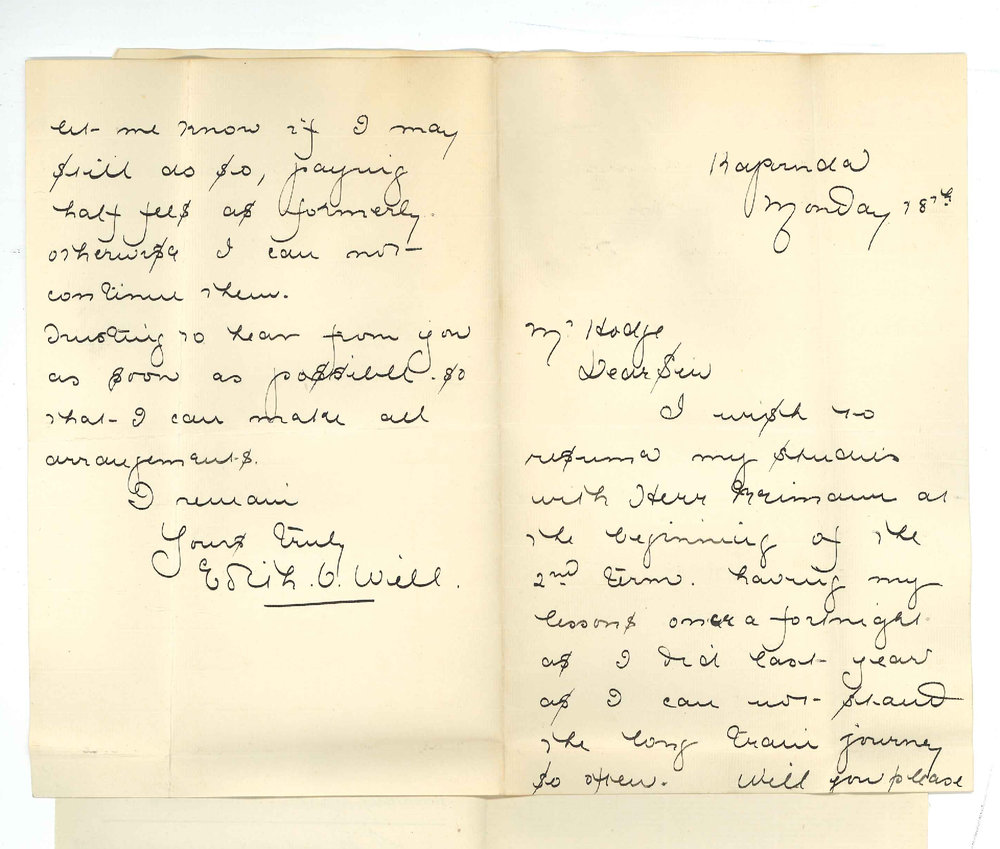 Kapunda
Monday 18th
Mr Hodge
Dear Sir
I wish to
resume my studies
with Herr Reimann at
the beginning of the
2nd term. having my
lessons once a fortnight
as I did last year
as I can not stand
the long train journey
so often. Will you please
let me know if I may
still do so, paying
half fees as formerly.
otherwise I can not
continue them.
Trusting to hear from you
as soon as possible so
that I can make all
arrangements.
I remain
Yours truly
Edith. O. Will.